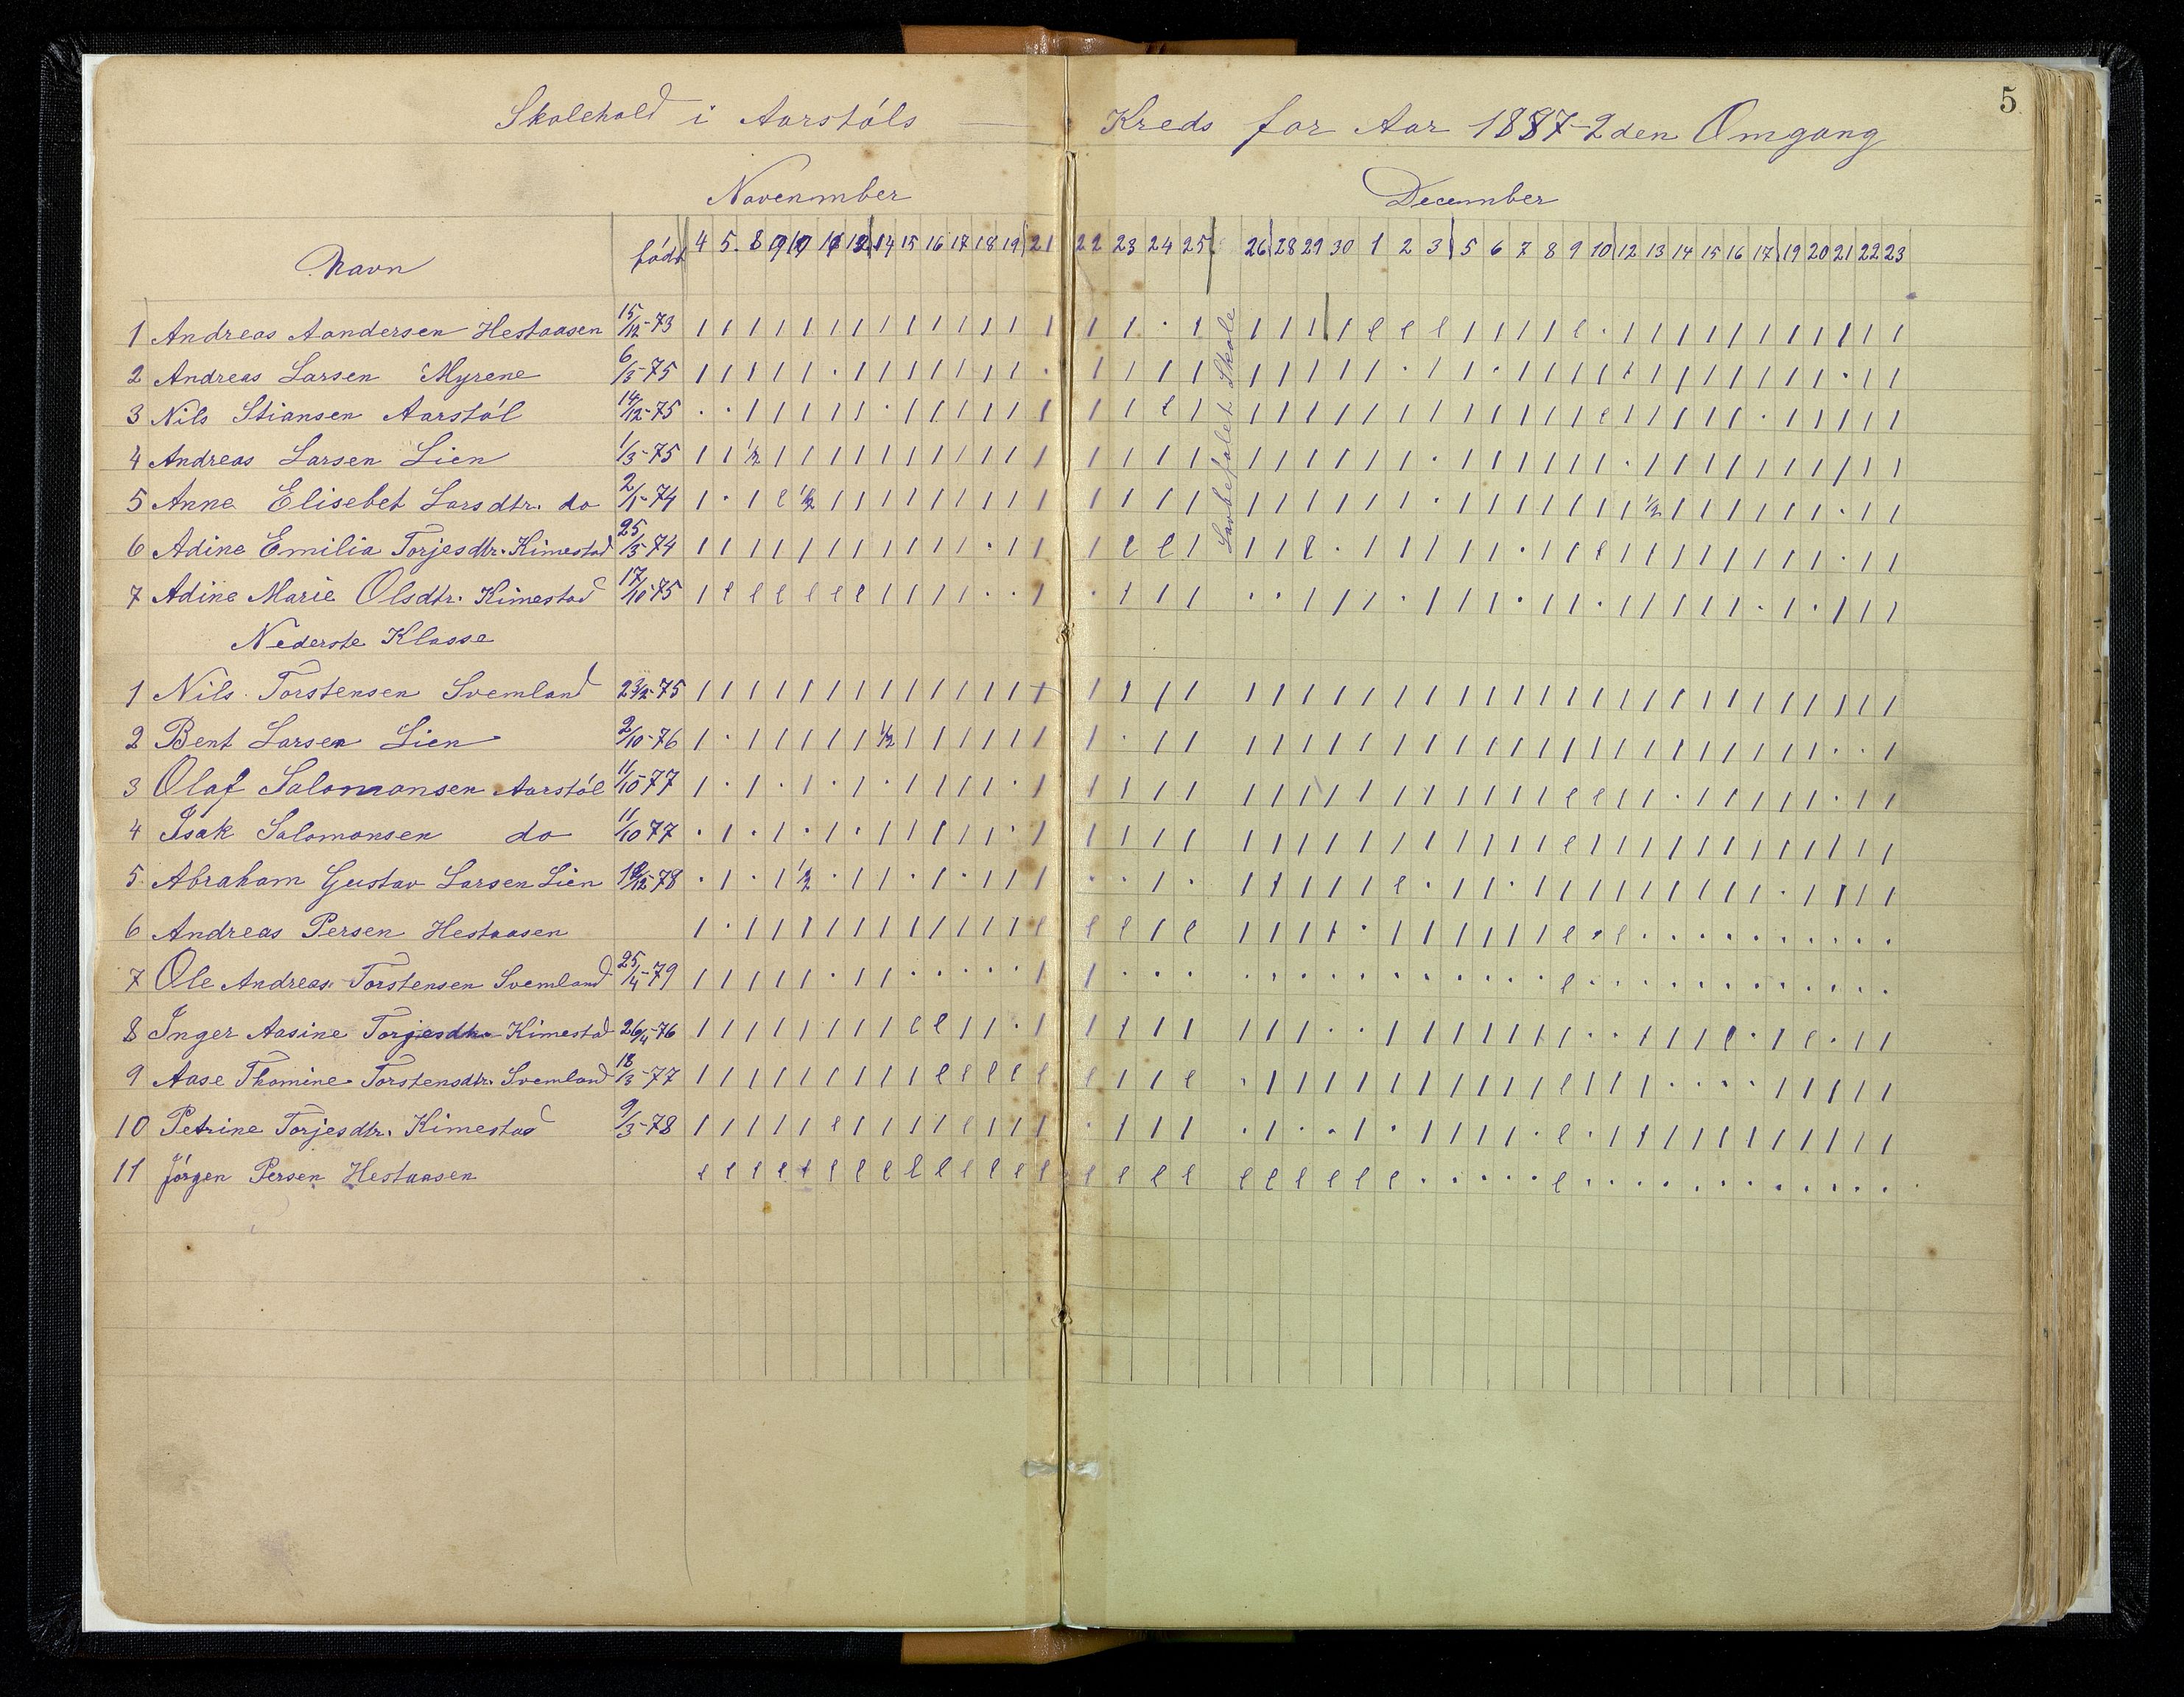 5
Skolehold i Aarstóls — Kreds for Aar 1887-2den Omgang
Novenmber December
Navn födt 4 5. 8 9 10 11 12 14 15 16 17 18 19 21 22 23 24 25 26 28 29 30 1 2 3 5 6 7 8 9 10 12 13 14 15 16 17 19 20 21 22 23
Lovbefalet Skole
1 Andreas Aandersen Hestaasen 15/12-73
2 Andreas Larsen Myrene 6/3-75
3 Nils Stiansen Aarstól 14/12-75
4 Andreas Larsen Lien 1/3-75 1/2
5 Anne Elisebet Larsdtr. do 2/1-74 1/2 1/2
6 Adine Emilia Torjesdtr. Kimestad 25/3-74
7 Adine Marie Olsdtr. Kimestad 17/10-75
Nederste Klasse
1 Nils Torstensen Svemland 23/2-75
2 Bent Larsen Lien 2/10-76 1/2
3 Olaf Salomonsen Aarstól 11/10 77
4 Isak Salomonsen do 11/10 77
5. Abraham Gustav Larsen Lien /12-78 1/2
6 Andreas Persen Hestaasen
7 Ole Andreas Torstensen Svemland 25/4-79
8 Inger Aasine Torjesdtr. Kimestad 26/4-76
9 Aase Thomine Torstensdtr. Svemland 18/3-77
10 Petrine Torjesdtr. Kimestad 9/3-78
11 Jórgen Persen Hestaasen